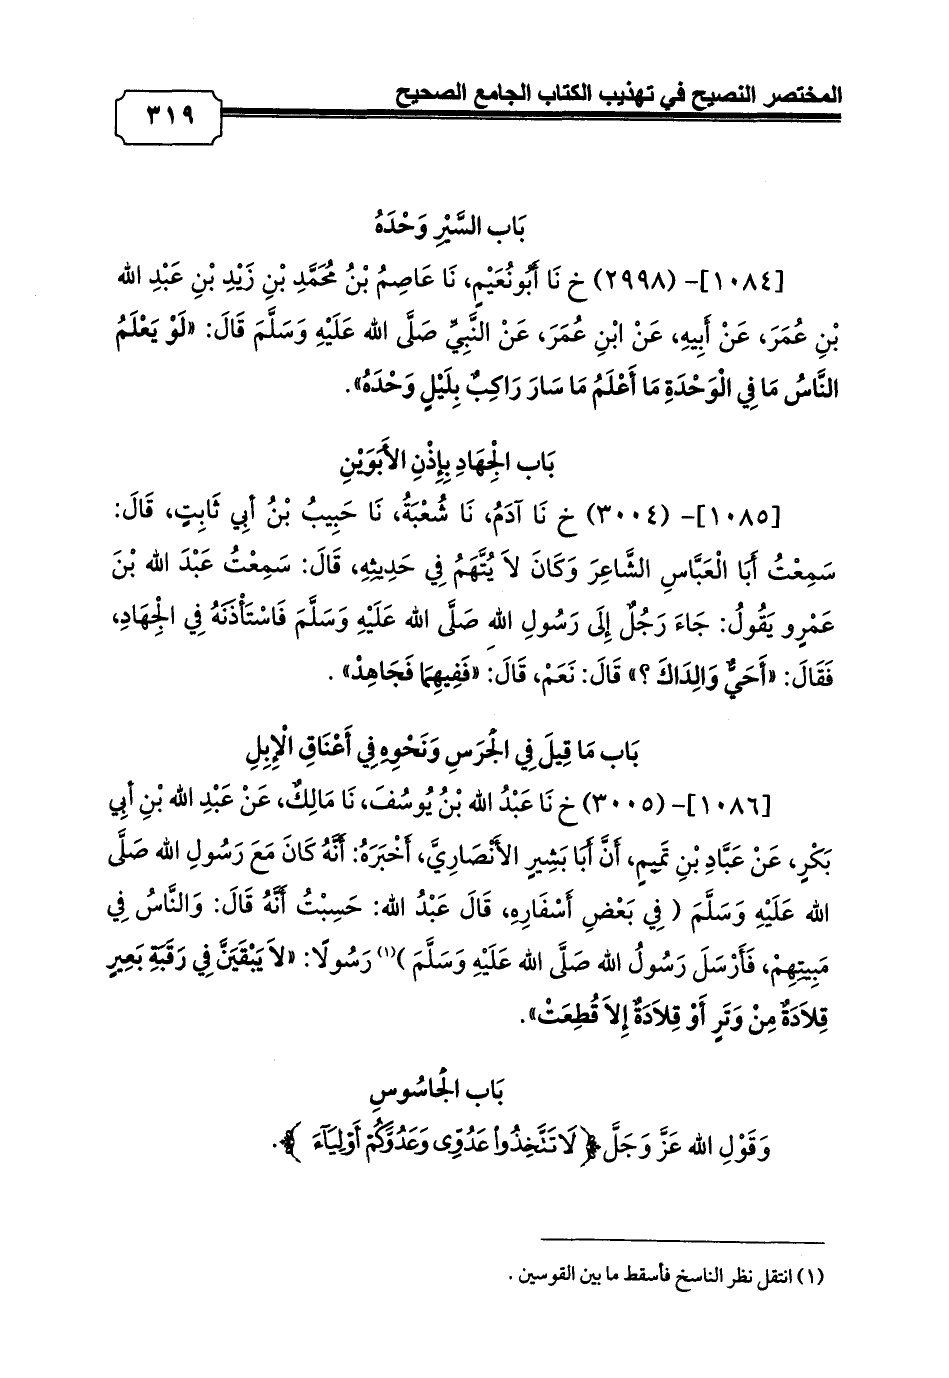 المختصر النصيح في تهذيب الكتاب الجامع الصحيح
٣١٩
بَاب السَّيْرِ وَحْدَهُ
[١٠٨٤]- (٢٩٩٨) خ نَا أَبُونُعَيْمٍ، نَا عَاصِمُ بْنُ مُحَمَّدِ بْنِ زَيْدِ بْنِ عَبْدِ الله
بْنِ عُمَرَ، عَنْ أَبِيهِ، عَنْ ابْنِ عُمَرَ، عَنْ النَّبِيِّ صَلَّى الله عَلَيْهِ وَسَلَّمَ قَالَ: «لَوْ يَعْلَمُ
النَّاسُ مَا فِي الْوَحْدَةِ مَا أَعْلَمُ مَا سَارَ رَاكِبٌ بِلَيْلٍ وَحْدَهُ».
بَاب الْجِهَادِ بِإِذْنِ الأَبَوَيْنِ
[١٠٨٥]- (٣٠٠٤) خ نَا آدَمُ، نَا شُعْبَةُ، نَا حَبِيبُ بْنُ أبِي ثَابِتٍ، قَالَ:
سَمِعْتُ أَبَا الْعَبَّاسِ الشَّاعِرَ وَكَانَ لاَ يُتَّهَمُ فِي حَدِيثِهِ، قَالَ: سَمِعْتُ عَبْدَ الله بْنَ
عَمْرٍو يَقُولُ: جَاءَ رَجُلٌ إِلَى رَسُولِ الله صَلَّى الله عَلَيْهِ وَسَلَّمَ فَاسْتَأْذَنَهُ فِي الْجِهَادِ،
فَقَالَ: «أَحَيٌّ وَالِدَاكَ ؟» قَالَ: نَعَمْ، قَالَ: «فَفِيهِمَا فَجَاهِدْ» .
بَاب مَا قِيلَ فِي الْجَرَسِ وَنَحْوِهِ فِي أَعْنَاقِ الْإِبِلِ
[١٠٨٦]- (٣٠٠٥) خ نَا عَبْدُ الله بْنُ يُوسُفَ، نَا مَالِكٌ، عَنْ عَبْدِ الله بْنِ أبِي
بَكْرٍ، عَنْ عَبَّادِ بْنِ تَمِيمٍ، أَنَّ أَبَا بَشِيرٍ الأَنْصَارِيَّ، أَخْبَرَهُ: أَنَّهُ كَانَ مَعَ رَسُولِ الله صَلَّى
الله عَلَيْهِ وَسَلَّمَ ( فِي بَعْضِ أَسْفَارِهِ، قَالَ عَبْدُ الله: حَسِبْتُ أَنَّهُ قَالَ: وَالنَّاسُ فِي
مَبِيتِهِمْ، فَأَرْسَلَ رَسُولُ الله صَلَّى الله عَلَيْهِ وَسَلَّمَ )(١) رَسُولًا: «لاَ يَبْقَيَنَّ فِي رَقَبَةِ بَعِيرٍ
قِلاَدَةٌ مِنْ وَتَرٍ أَوْ قِلاَدَةٌ إِلاَ قُطِعَتْ».
بَاب الْجَاسُوسِ
وَقَوْلِ الله عَزَّ وَجَلَّ ﴿ لَا تَتَّخِذُوا عَدُوِّى وَعَدُوَّكُمْ أَوْلِيَآءَ ﴾.
(١) انتقل نظر الناسخ فأسقط ما بين القوسين .